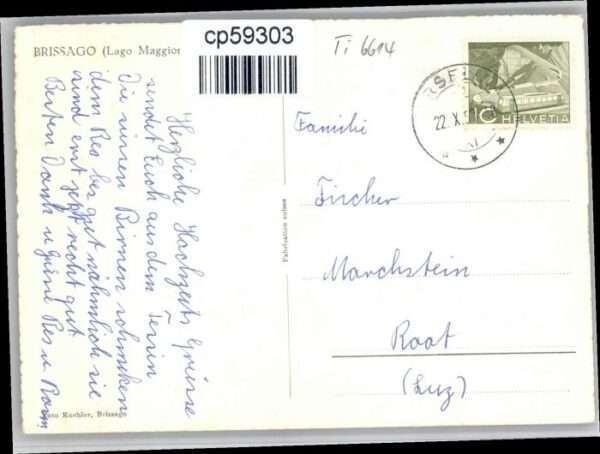 BRISSAGO (Lago Maggior
cp59303
Ti 6614
Herzliche Hochzeits Grüsse
sendet Euch aus dem Tessin
Die rissen Birnen schmiken
dem Res ser gut nähmlich sie
sind erst jetzt recht gut
Besten Dank u grüse Res u Rosm
Fabrication suisse
Kuehler, Brissago
22. X.
10
HELVETIA
Familie
Fischer
Marchstein
Root
(Luz)